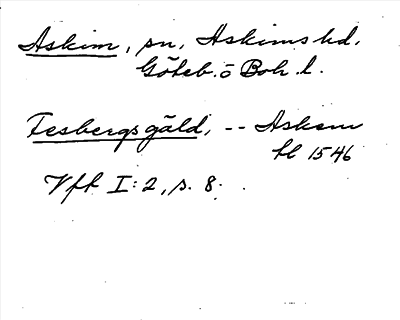 Askim, sn, Askims hd.
Göteb. o Boh. l.
Fesbergsgäld, -- Askem
hl 1546
Vff I:2, s. 8.